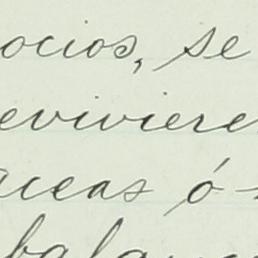 ocios, se
eviviere
aceas ó
balan